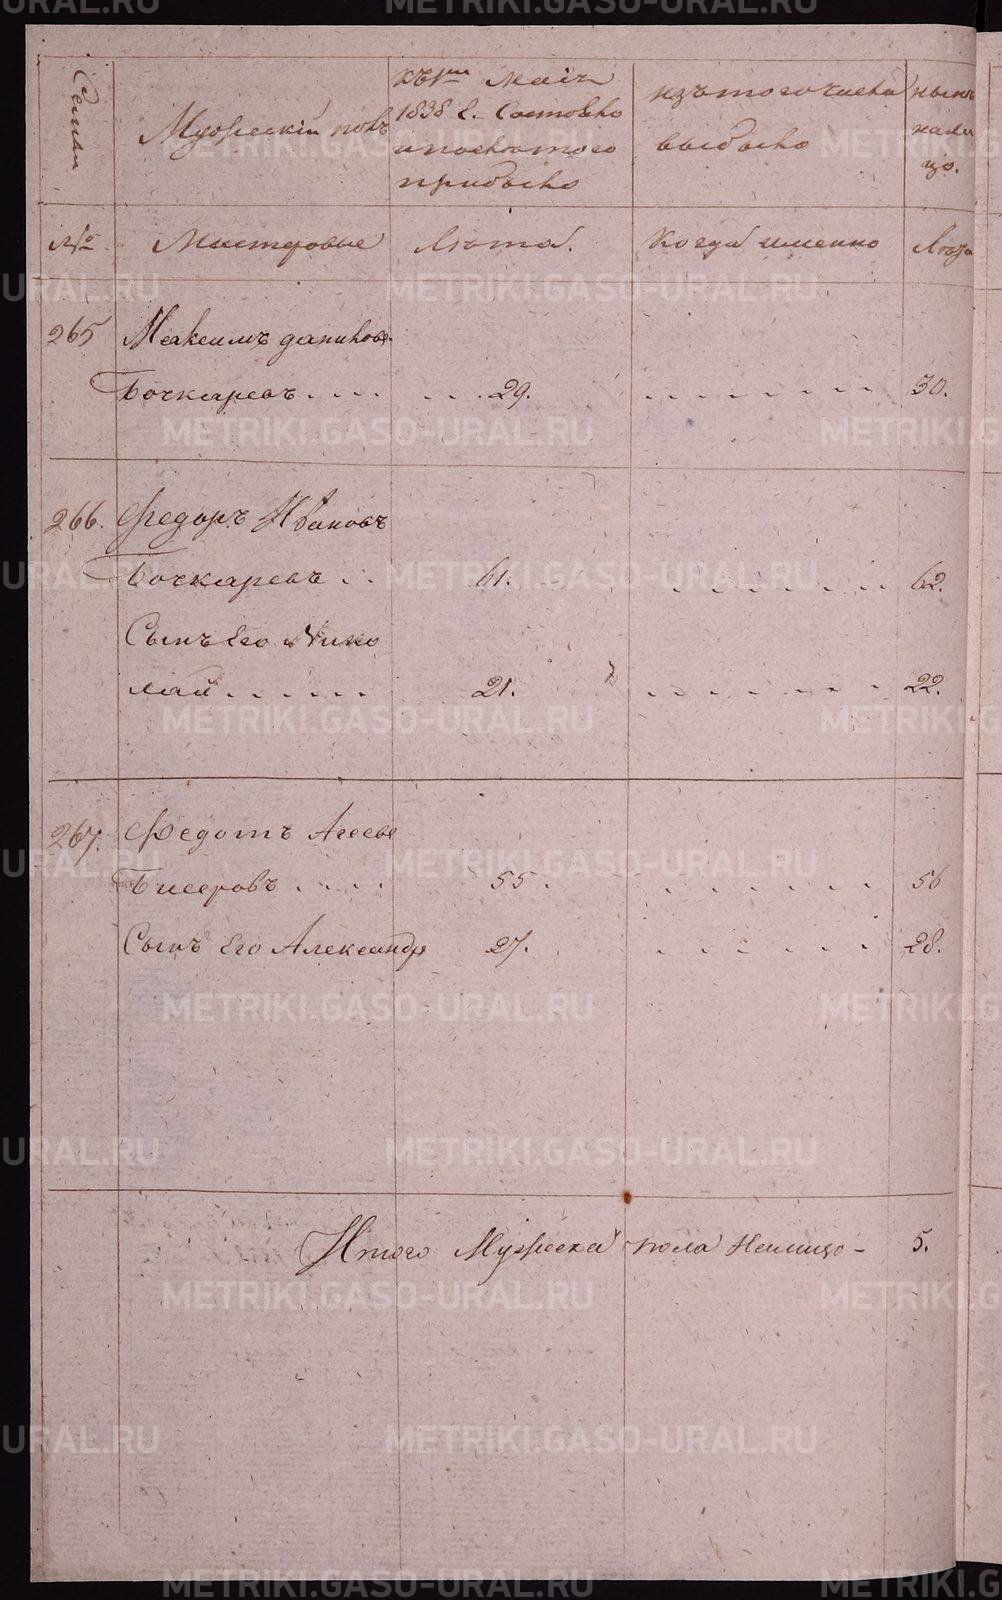 Семьи
Мужеский полъ
къ 1му маія
1838 г. Состояло
и после того
прибыло
изъ того числа
выбыло
нынѣ
нали
цо.
№
Мастеровые
Лѣта.
Когда именно
Лѣта
265
Максимъ даниловъ
Бочкаревъ . . . . . . . 29. . . . . . . . 30.
266. Федоръ Ивановъ
Бочкаревъ . . 61. . . . . . . . 62.
Сынъ Его Нико
лай . . . . . . 21. . . . . . . . 22.
267. Федотъ Агеевъ
Бисеровъ . . . . 55. . . . . . . . 56
Сынъ Его Александръ 27. . . . . . . 28.
Итого Мужеска пола Налицо - 5.
METRIKI.GASO-URAL.RU